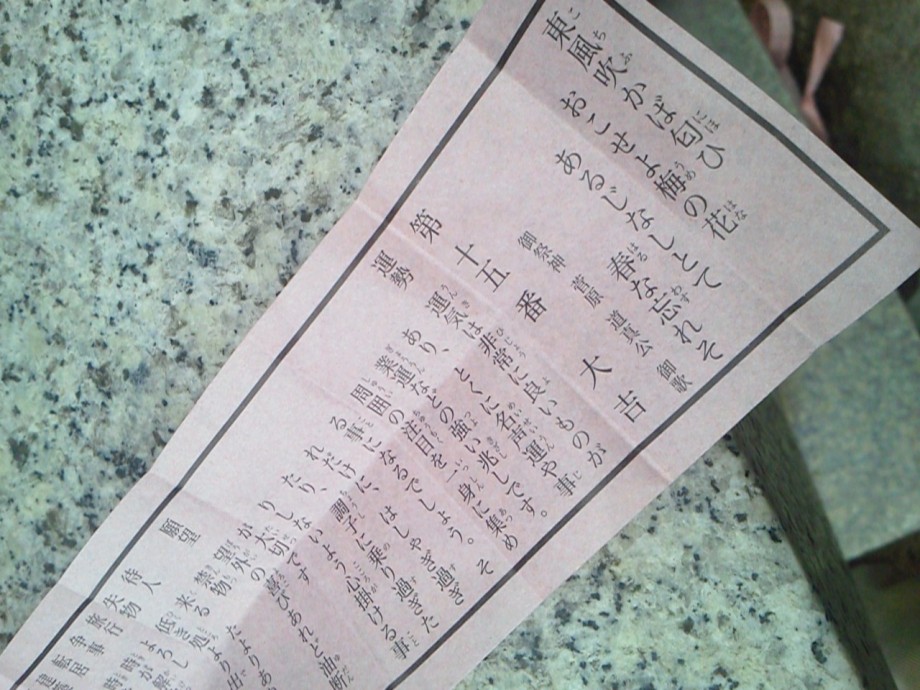 東風吹かば匂ひの花
おこせよ梅の花
あるじなしとて
春な忘れそ
御祭神 菅原 道真公 御歌
第十五番 大吉
運勢
運気は非常に良いものが
あり、とくに名声運や事
業運などの強い兆しです。そ
周囲の注目を一身に集め
る事になるでしょう。
れだけに、はしゃぎ過ぎ
たり、調子に乗り過ぎた
りしないよう心掛ける事
が大切です
願望 望外の喜びあれど油断
禁物
待人 来る たより
失物 低き処より出
旅行 よろし
争事 時が解
転居 時